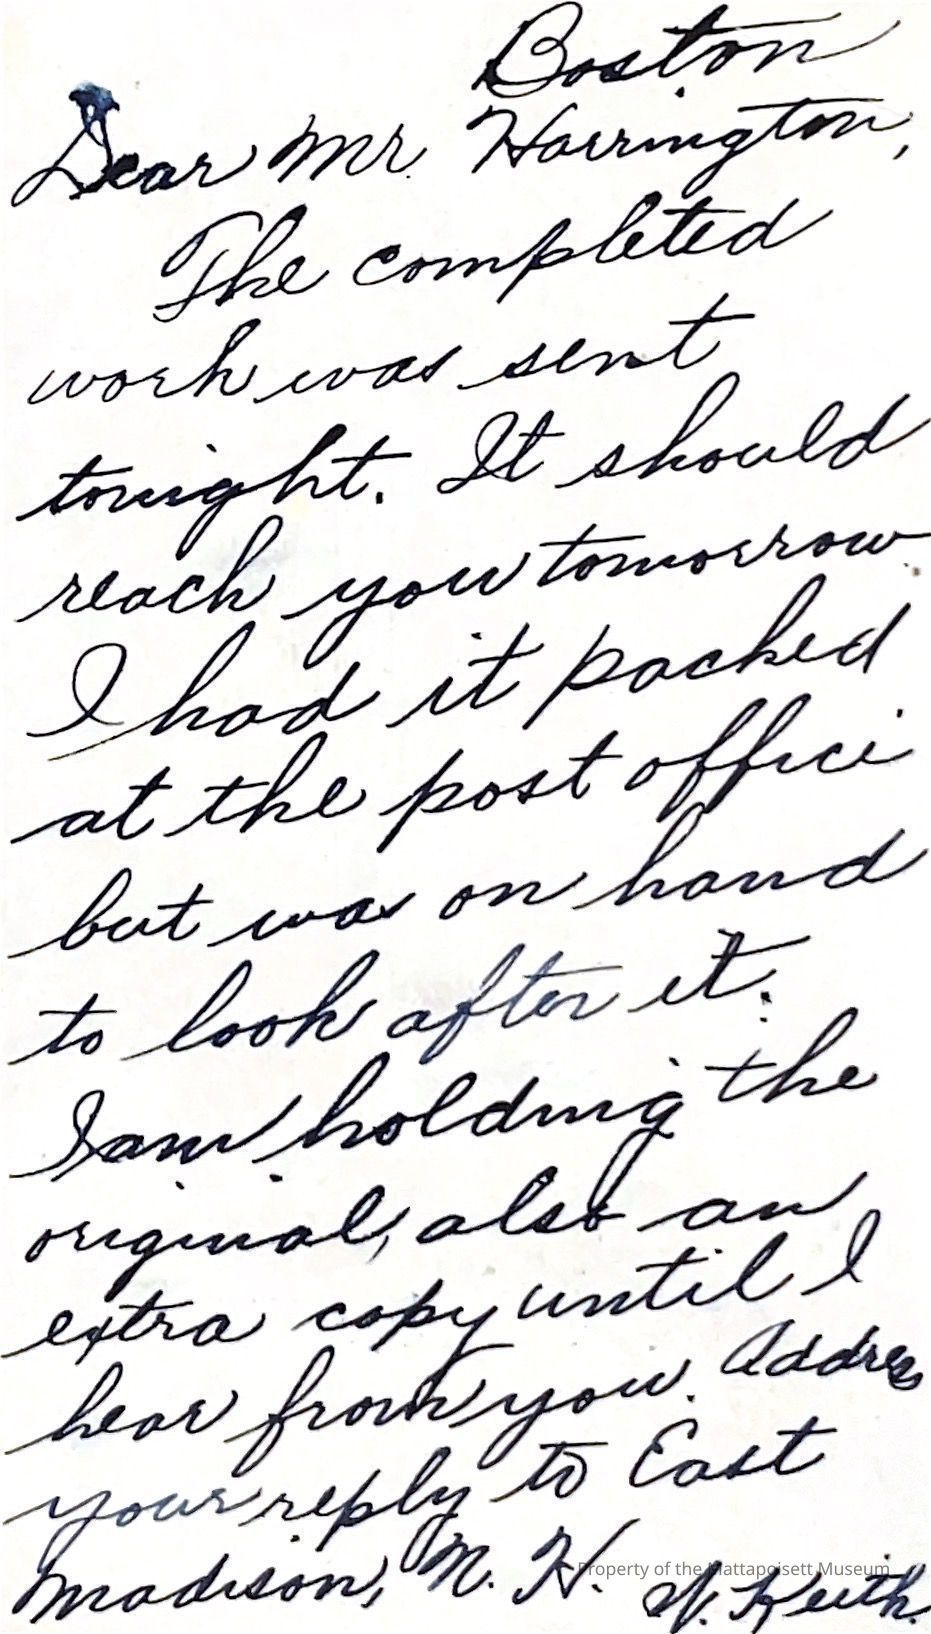 Boston
Dear Mr. Harrington,
The completed
work was sent
tonight. It should
reach you tomorrow.
I had it packed
at the post office
but was on hand
to look after it.
I am holding the
original, also an
extra copy until I
hear from you. Address
your reply to East
Madison, N. H.
Property of the Mattapoisett Museum
Keith.